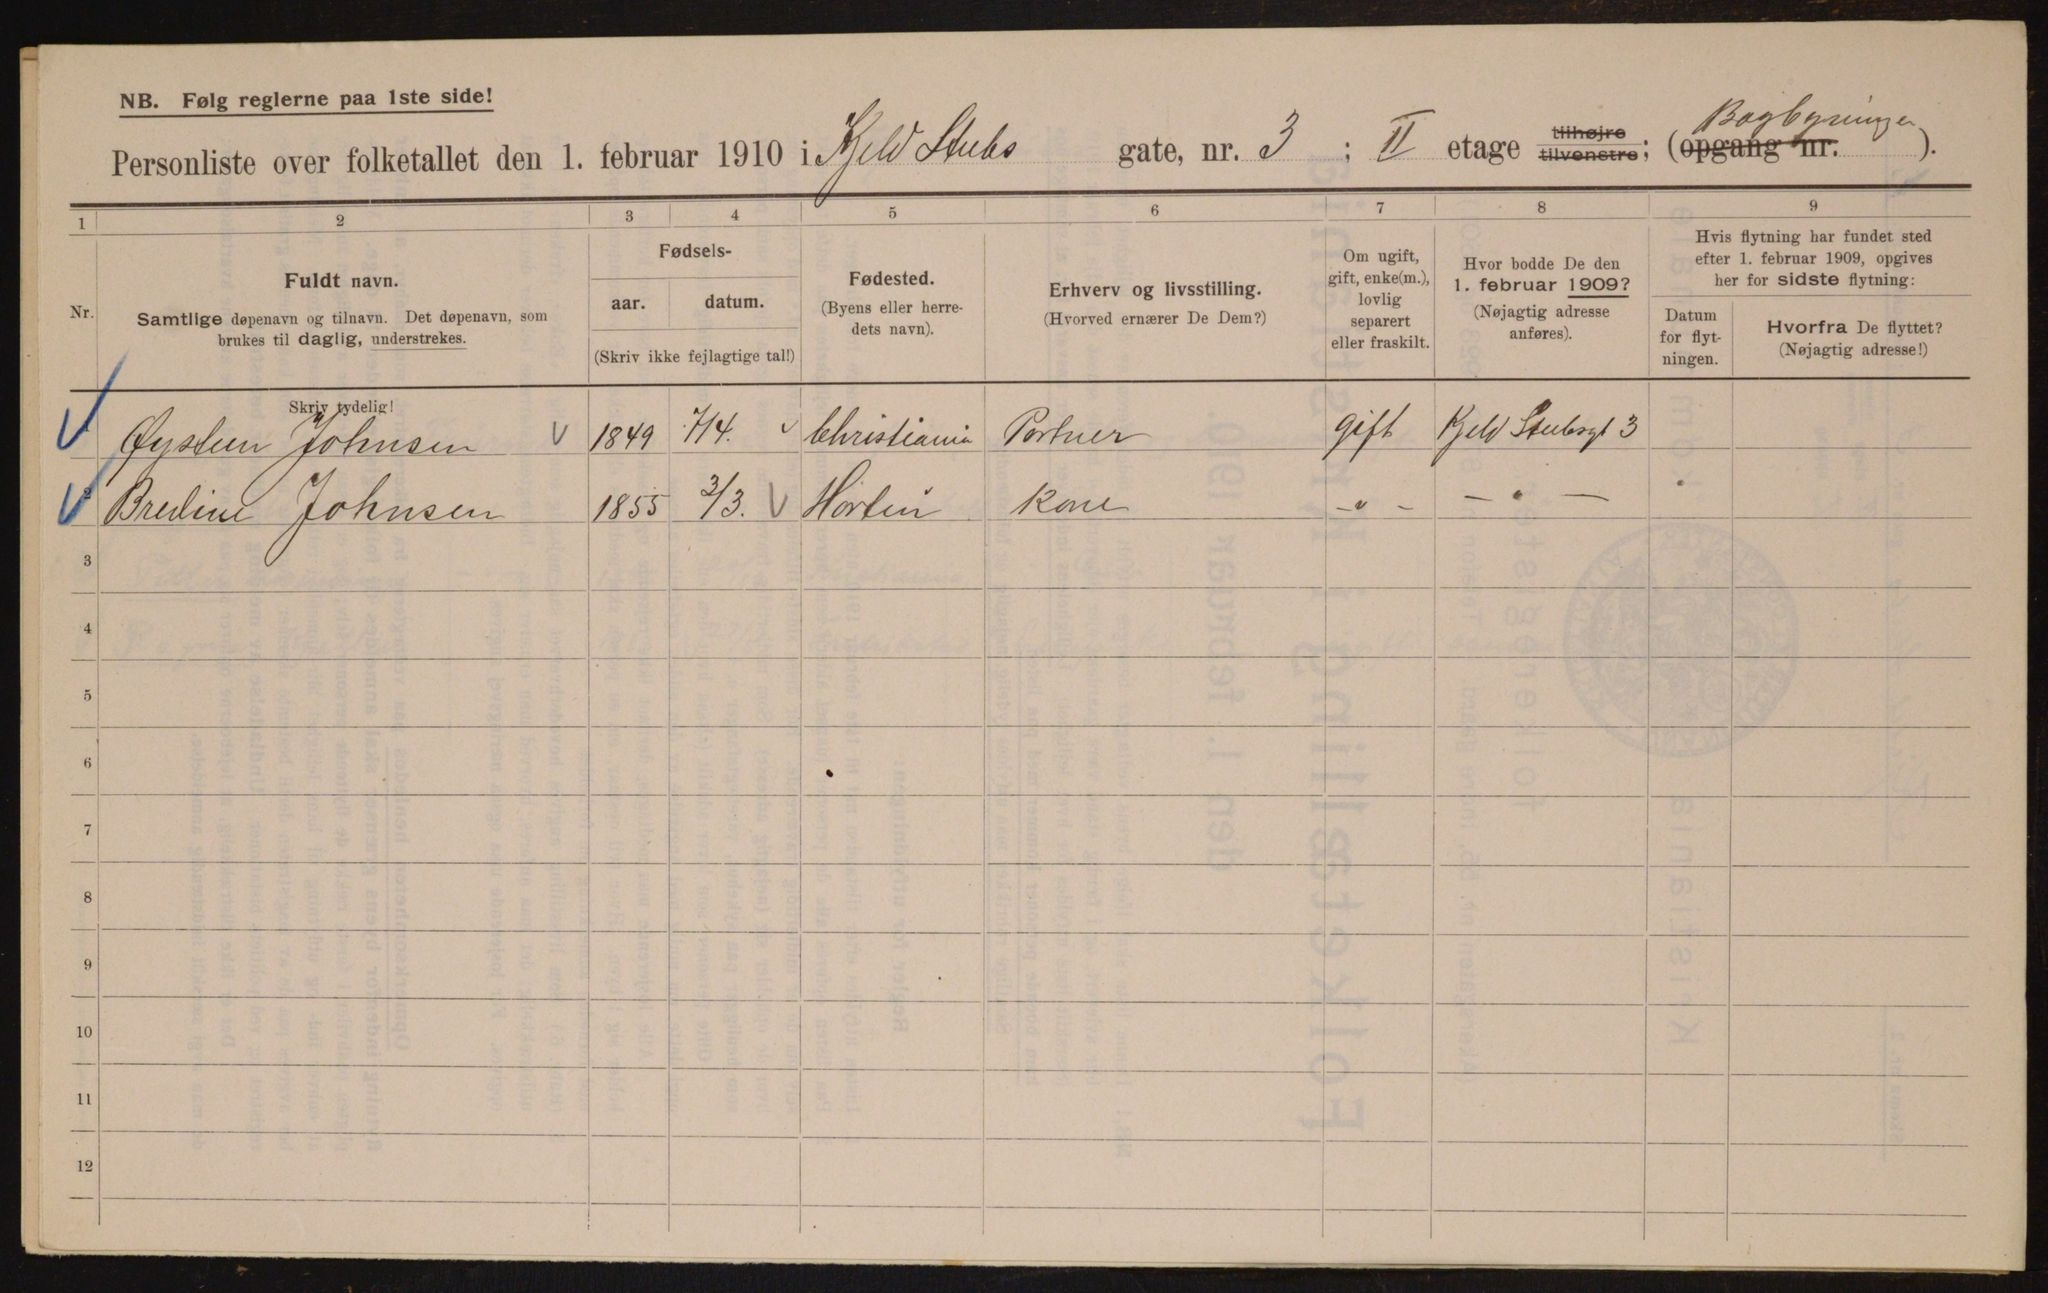 NB. Følg reglerne paa 1ste side!
Personliste over folketallet den 1. februar 1910 i Kjeld Stubs gate, nr. 3 ; II etage tilhøjre tilvenstre; (opgang nr. Bagbygningen ).
1 2 3 4 5 6 7 8 9
Nr.
Fuldt navn.
Samtlige døpenavn og tilnavn. Det døpenavn, som
brukes til daglig, understrekes.
Fødsels-
aar. datum.
(Skriv ikke fejlagtige tal!)
Fødested.
(Byens eller herre-
dets navn).
Erhverv og livsstilling.
(Hvorved ernærer De Dem?)
Om ugift,
gift, enke(m.),
lovlig
separert
eller fraskilt.
Hvor bodde De den
1. februar 1909?
(Nøjagtig adresse
anføres).
Hvis flytning har fundet sted
efter 1. februar 1909, opgives
her for sidste flytning:
Datum
for flyt-
ningen.
Hvorfra De flyttet?
(Nøjagtig adresse!)
Skriv tydelig!
Øysten Johnsen 1849 7/4. Christiania Portner gift Kjeld Stubsgt 3
2 Bredine Johnsen 1855 3/3. Horten Kone - " - - " -
3
4
5
6
7
8
9
10
11
12